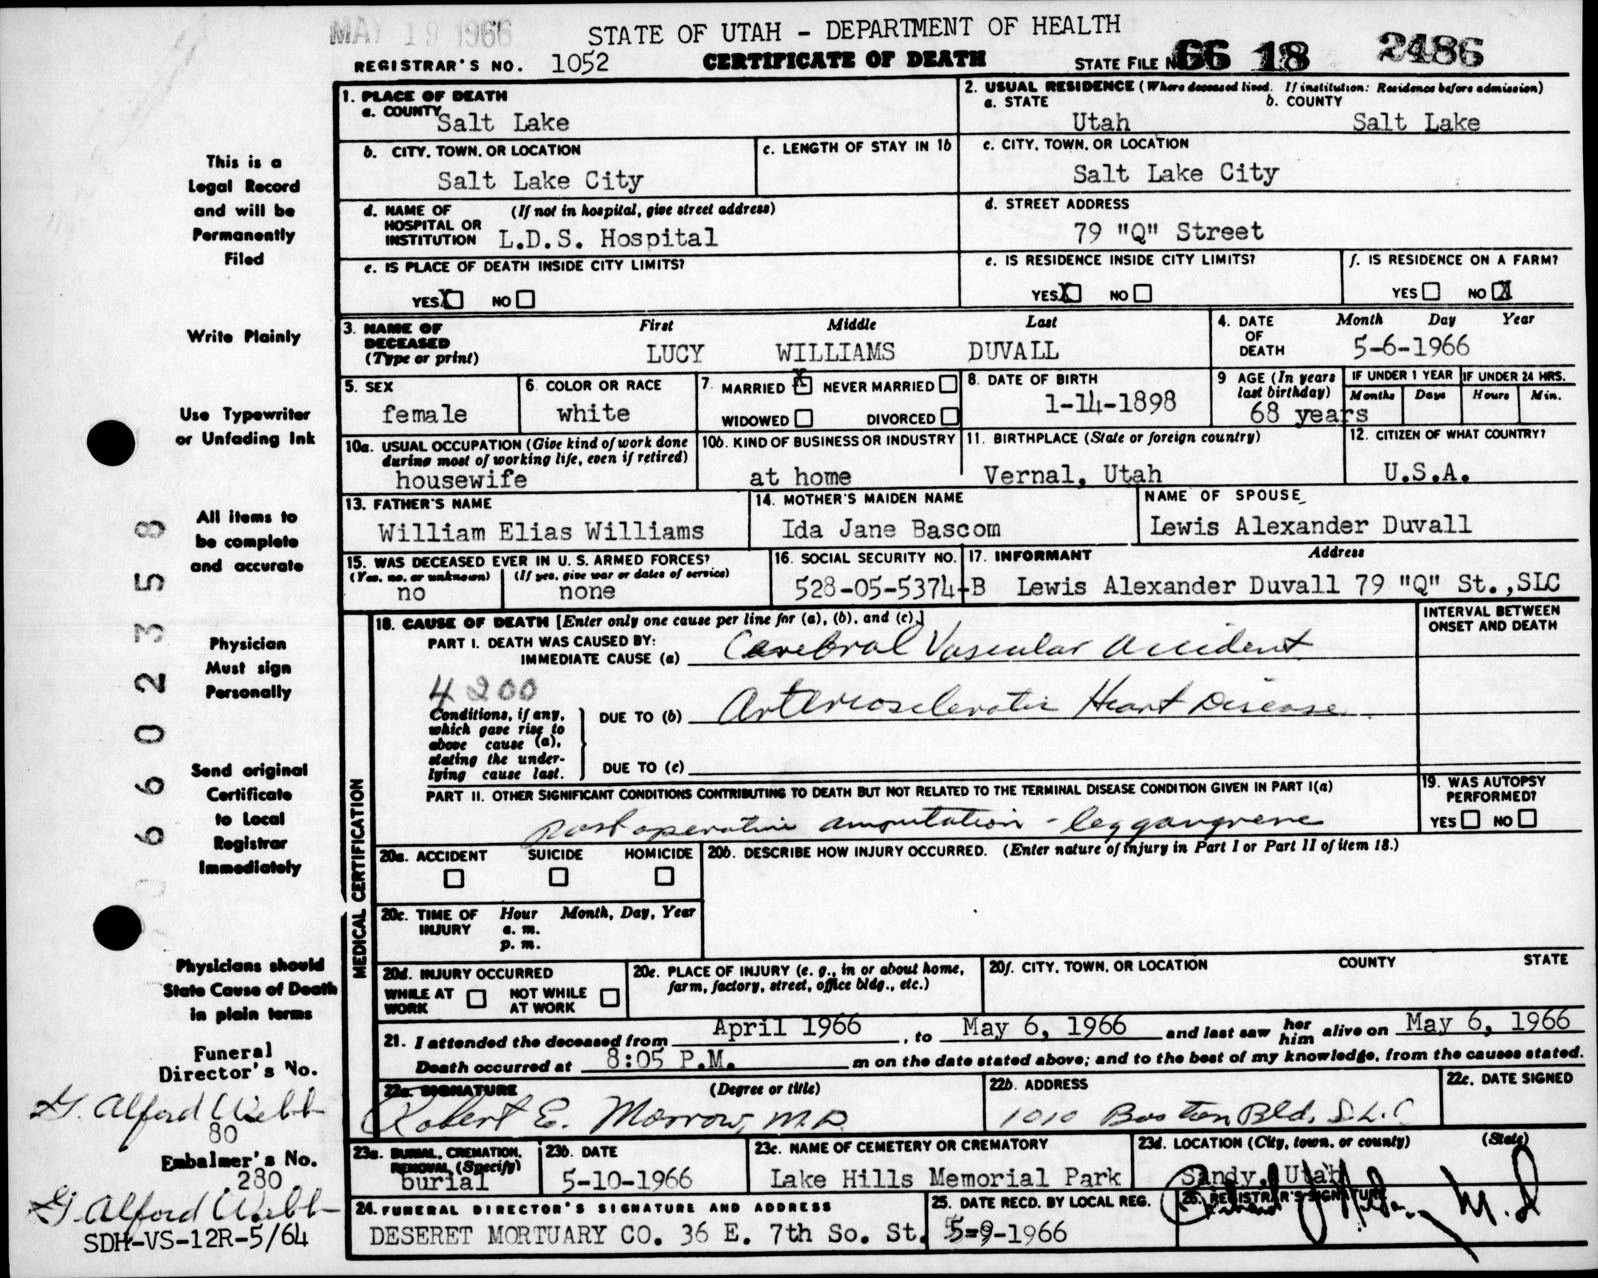 MAY 19 1966
STATE OF UTAH - DEPARTMENT OF HEALTH
REGISTRAR'S NO. 1052 CERTIFICATE OF DEATH STATE FILE NO. 66 18 2486
1. PLACE OF DEATH
a. COUNTY Salt Lake
2. USUAL RESIDENCE (Where deceased lived. If institution: Residence before admission)
a. STATE b. COUNTY
Utah Salt Lake
b. CITY, TOWN, OR LOCATION
Salt Lake City
c. LENGTH OF STAY IN 1b
c. CITY, TOWN, OR LOCATION
Salt Lake City
d. NAME OF HOSPITAL OR INSTITUTION (If not in hospital, give street address)
L.D.S. Hospital
d. STREET ADDRESS
79 "Q" Street
e. IS PLACE OF DEATH INSIDE CITY LIMITS?
YES X NO
e. IS RESIDENCE INSIDE CITY LIMITS?
YES X NO
f. IS RESIDENCE ON A FARM?
YES NO X
3. NAME OF DECEASED (Type or print)
First Middle Last
LUCY WILLIAMS DUVALL
4. DATE OF DEATH Month Day Year
5-6-1966
5. SEX
female
6. COLOR OR RACE
white
7. MARRIED X NEVER MARRIED
WIDOWED DIVORCED
8. DATE OF BIRTH
1-14-1898
9 AGE (In years last birthday)
68 years
IF UNDER 1 YEAR IF UNDER 24 HRS.
Months Days Hours Min.
10a. USUAL OCCUPATION (Give kind of work done during most of working life, even if retired)
housewife
10b. KIND OF BUSINESS OR INDUSTRY
at home
11. BIRTHPLACE (State or foreign country)
Vernal, Utah
12. CITIZEN OF WHAT COUNTRY?
U.S.A.
13. FATHER'S NAME
William Elias Williams
14. MOTHER'S MAIDEN NAME
Ida Jane Bascom
NAME OF SPOUSE
Lewis Alexander Duvall
15. WAS DECEASED EVER IN U. S. ARMED FORCES?
(Yes, no, or unknown) (If yes, give war or dates of service)
no none
16. SOCIAL SECURITY NO.
528-05-5374-B
17. INFORMANT Address
Lewis Alexander Duvall 79 "Q" St.,SLC
MEDICAL CERTIFICATION
18. CAUSE OF DEATH [Enter only one cause per line for (a), (b), and (c).]
INTERVAL BETWEEN ONSET AND DEATH
PART I. DEATH WAS CAUSED BY:
IMMEDIATE CAUSE (a) Cerebral Vascular Accident
4200
Conditions, if any, which gave rise to above cause (a), stating the underlying cause last.
DUE TO (b) Arteriosclerotic Heart Disease
DUE TO (c)
PART II. OTHER SIGNIFICANT CONDITIONS CONTRIBUTING TO DEATH BUT NOT RELATED TO THE TERMINAL DISEASE CONDITION GIVEN IN PART I(a)
post operative amputation - leg gangrene
19. WAS AUTOPSY PERFORMED?
YES NO
20a. ACCIDENT SUICIDE HOMICIDE
20b. DESCRIBE HOW INJURY OCCURRED. (Enter nature of injury in Part I or Part II of item 18.)
20c. TIME OF INJURY Hour Month, Day, Year
a. m.
p. m.
20d. INJURY OCCURRED
WHILE AT WORK NOT WHILE AT WORK
20e. PLACE OF INJURY (e. g., in or about home, farm, factory, street, office bldg., etc.)
20f. CITY, TOWN, OR LOCATION COUNTY STATE
21. I attended the deceased from April 1966, to May 6, 1966 and last saw her him alive on May 6, 1966
Death occurred at 8:05 P.M. m on the date stated above; and to the best of my knowledge, from the causes stated.
22a. SIGNATURE (Degree or title)
Robert E. Morrow, M.D.
22b. ADDRESS
1010 Boston Bld, S.L.C
22c. DATE SIGNED
23a. BURIAL, CREMATION, REMOVAL (Specify)
burial
23b. DATE
5-10-1966
23c. NAME OF CEMETERY OR CREMATORY
Lake Hills Memorial Park
23d. LOCATION (City, town, or county) (State)
Sandy, Utah
24. FUNERAL DIRECTOR'S SIGNATURE AND ADDRESS
DESERET MORTUARY CO. 36 E. 7th So. St.
25. DATE RECD. BY LOCAL REG.
5-9-1966
26. REGISTRAR'S SIGNATURE
M.D
This is a
Legal Record
and will be
Permanently
Filed
Write Plainly
Use Typewriter
or Unfading Ink
All items to
be complete
and accurate
Physician
Must sign
Personally
Send original
Certificate
to Local
Registrar
Immediately
Physicians should
State Cause of Death
in plain terms
Funeral
Director's No.
G. Alford Webb
80
Embalmer's No.
280
G. Alford Webb
SDH-VS-12R-5/64
66023558